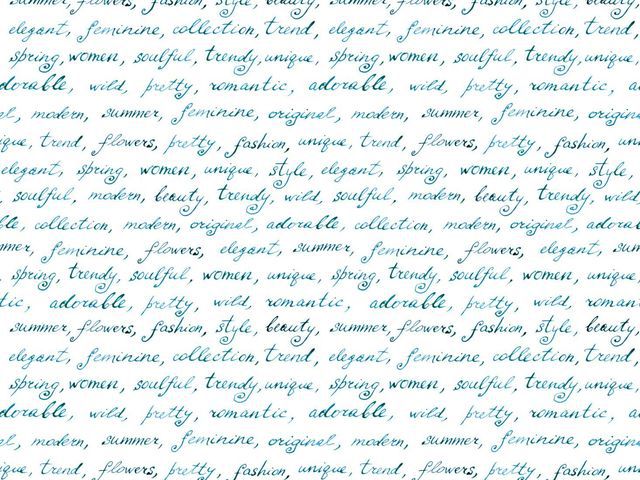 summer, flowers, fashion, style, beauty, summer, flowers, fashion, style, beauty,
elegant, feminine, collection, trend, elegant, feminine, collection, trend,
spring, women, soulful, trendy, unique, spring, women, soulful, trendy, unique,
dorable, wild, pretty, romantic, adorable, wild, pretty, romantic, a
el, modern, summer, feminine, original, modern, summer, feminine, origina
ique, trend, flowers, pretty, fashion, unique, trend, flowers, pretty, fashion,
elegant, spring, women, unique, style, elegant, spring, women, unique, style,
, soulful, modern, beauty, trendy, wild, soulful, modern, beauty, trendy, wild
ble, collection, modern, original, adorable, collection, modern, original, adora
mmer, feminine, flowers, elegant, summer, feminine, flowers, elegant, sum
spring, trendy, soulful, women, unique, spring, trendy, soulful, women, unique
tic, adorable, pretty, wild, romantic, adorable, pretty, wild, roman
summer, flowers, fashion, style, beauty, summer, flowers, fashion, style, beauty,
elegant, feminine, collection, trend, elegant, feminine, collection, trend,
spring, women, soulful, trendy, unique, spring, women, soulful, trendy, unique,
dorable, wild, pretty, romantic, adorable, wild, pretty, romantic, a
el, modern, summer, feminine, original, modern, summer, feminine, origina
ique, trend, flowers, pretty, fashion, unique, trend, flowers, pretty, fashion,